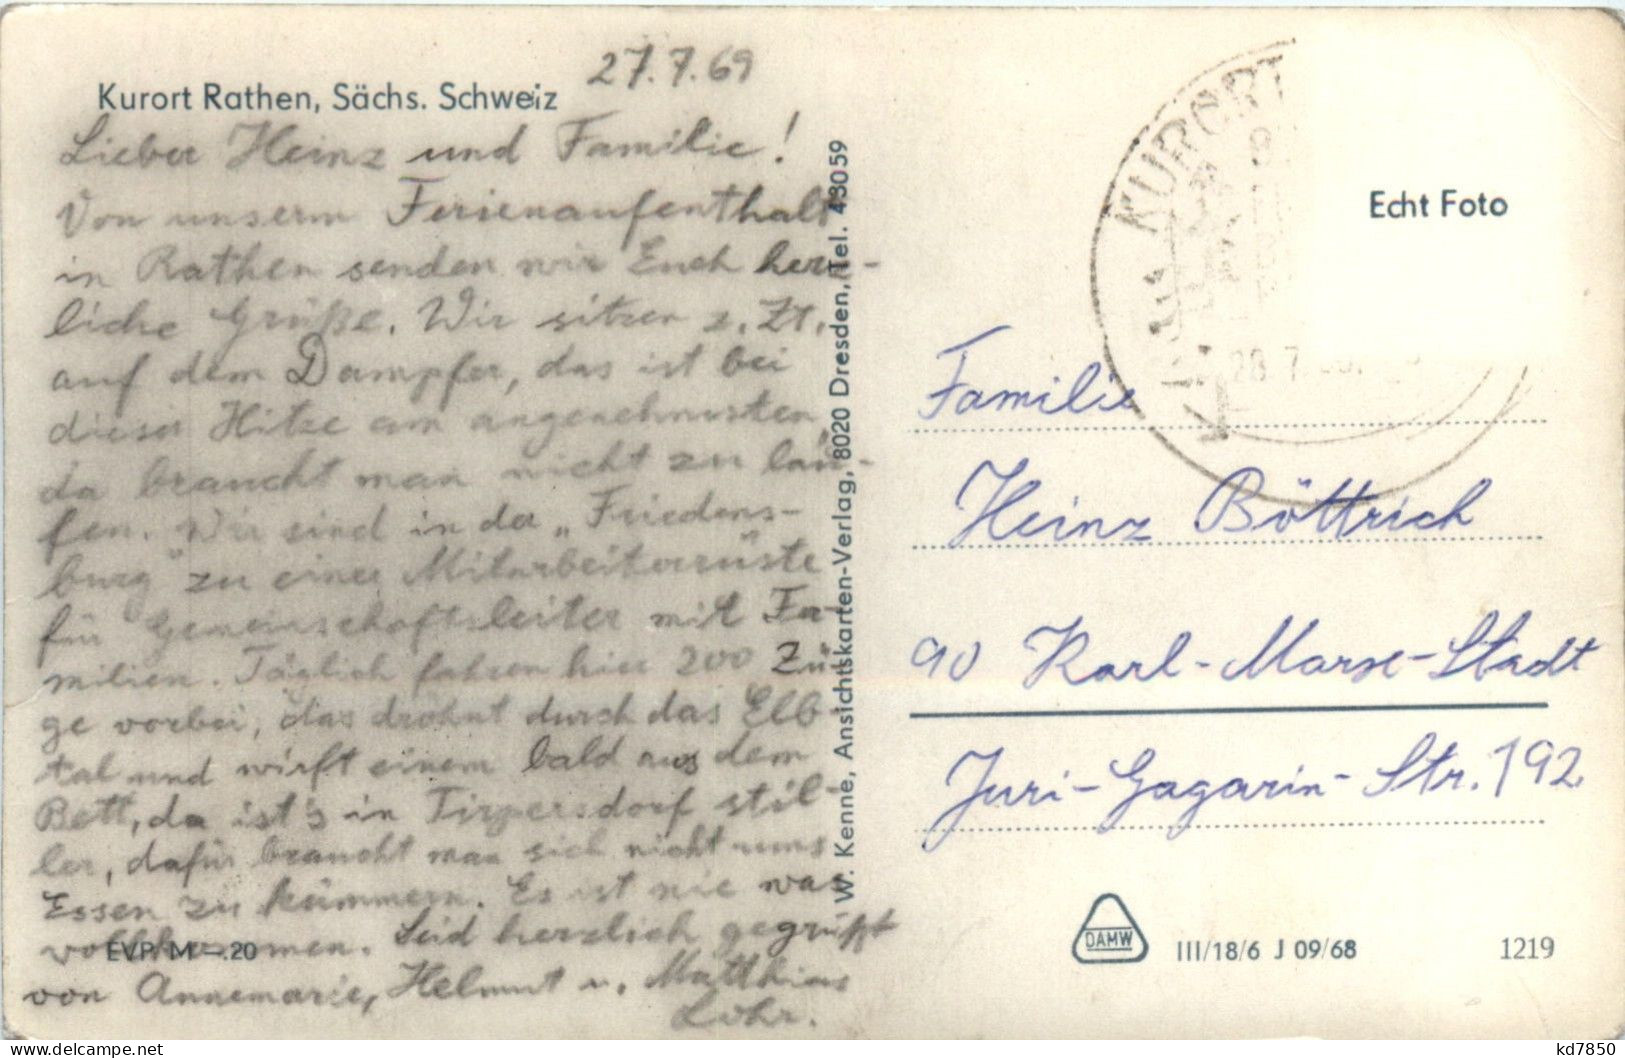 27.7.69
Kurort Rathen, Sächs. Schweiz
Lieber Heinz und Familie!
Von unserm Ferienaufenthalt
in Rathen senden wir Euch herz-
liche Grüße. Wir sitzen z. Zt.
auf dem Dampfer, das ist bei
dieser Hitze am angenehmsten,
da braucht man nicht zu lau-
fen. Wir sind in der „Friedens-
burg" zu einer Mitarbeiterrüste
für Gemeinschaftsleiter mit Fa-
milien. Täglich fahren hier 200 Zü-
ge vorbei, das dröhnt durch das Elb-
tal und wirft einem bald aus dem
Bett, da ist's in Tirpersdorf stil-
ler, dafür braucht man sich nicht ums
Essen zu kümmern. Es ist nie was
vollkommen. Seid herzlich gegrüßt
EVP M -.20
von Annemarie, Helmut u. Matthias
Lohr.
W. Kenne, Ansichtskarten-Verlag, 8020 Dresden, Tel. 43059
KURORT
28.7.
Echt Foto
Familie
Heinz Böttrich
90 Karl-Marx-Stadt
Juri-Gagarin-Str. 192
DAMW
III/18/6 J 09/68
1219
kd7850